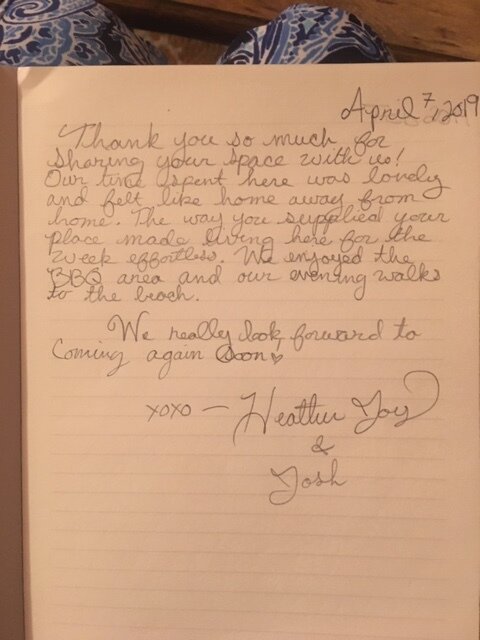 April 7, 2019
Thank you so much for
sharing your space with us!
Our time spent here was lovely
and felt like home away from
home. The way you supplied your
place made living here for the
week effortless. We enjoyed the
BBQ area and our evening walks
to the beach.
We really look forward to
Coming again Soon♡
xoxo — Heather Joy
&
Josh